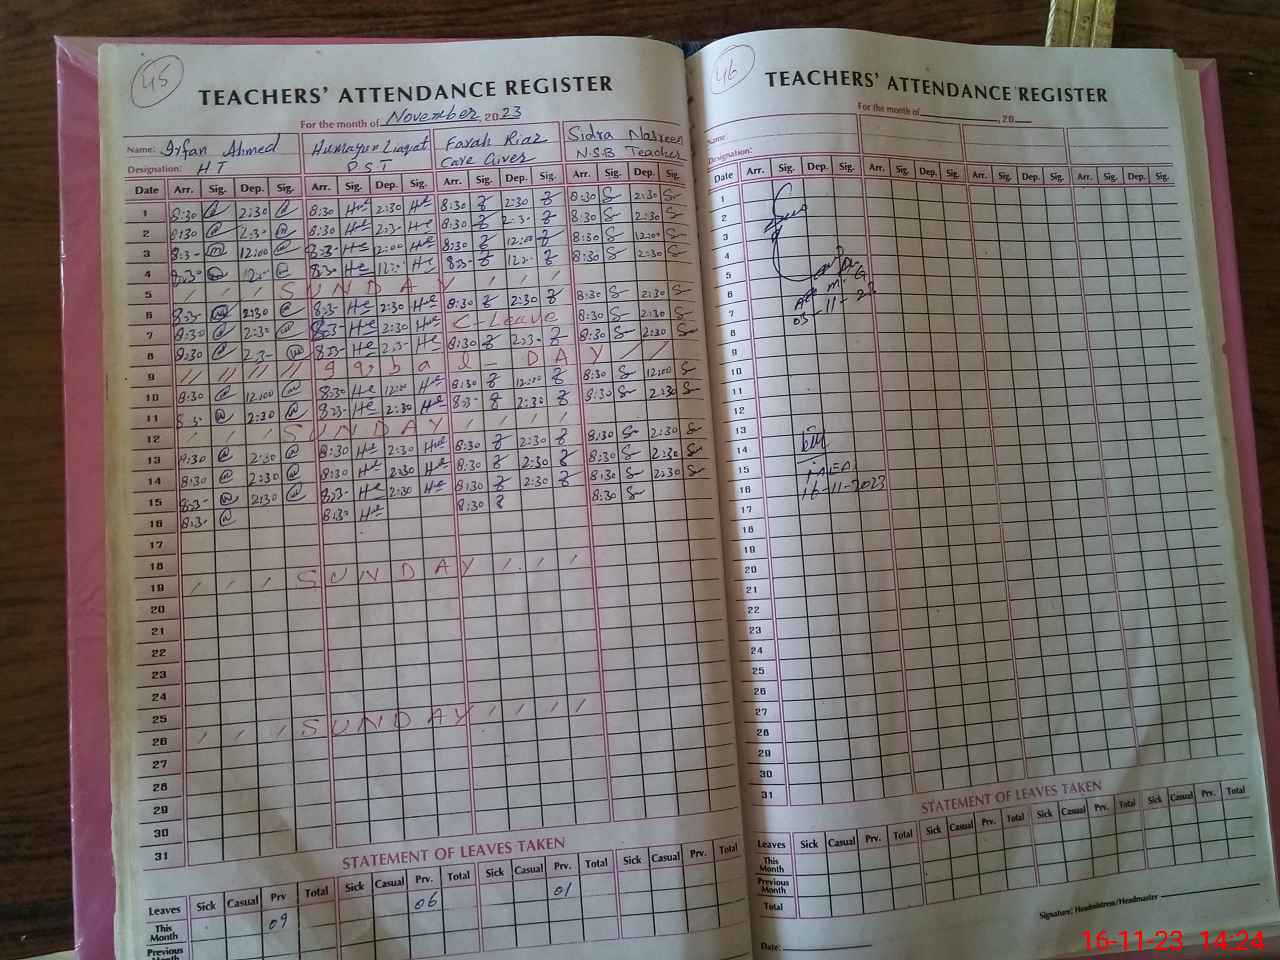 45
TEACHERS' ATTENDANCE REGISTER
For the month of November, 2023
Name: Irfan Ahmed Humayun Liaqat Farah Riaz Sidra Nasreen
Designation: HT PST Care Giver N.S.B Teacher
Date Arr. Sig. Dep. Sig. Arr. Sig. Dep. Sig. Arr. Sig. Dep. Sig. Arr. Sig. Dep. Sig.
1 8:30 2:30 8:30 2:30 8:30 2:30 8:30 2:30
2 8:30 2:3- 8:30 2:3- 8:30 2:3- 8:30 2:30
3 8:3- 12:00 8:3- 12:00 8:30 12:00 8:30 12:00
4 8:3- 12:- 8:3- 12:- 8:3- 12:- 8:30 2:30
5 SUNDAY
6 8:3- 2:30 8:3- 2:30 8:30 2:30 8:30 2:30
7 8:30 2:30 8:3- 2:30 C-Leave 8:30 2:30
8 8:30 2:3- 8:3- 2:3- 8:30 2:3- 8:30 2:30
9 Iqbal - DAY
10 8:30 12:00 8:30 12:00 8:30 12:00 8:30 12:00
11 2:30 8:3- 2:30 8:3- 2:30 8:30 2:30
12 SUNDAY
13 8:30 2:30 8:30 2:30 8:30 2:30 8:30 2:30
14 8:30 2:30 8:30 2:30 8:30 2:30 8:30 2:30
15 8:3- 2:30 8:3- 2:30 8:30 2:30 8:30 2:30
16 8:3- 8:30 8:30 8:30
17
18
19 SUNDAY
20
21
22
23
24
25
26 SUNDAY
27
28
29
30
31
STATEMENT OF LEAVES TAKEN
Leaves Sick Casual Prv Total Sick Casual Prv. Total Sick Casual Prv. Total Sick Casual Prv. Total
This Month 09 06 01
Previous Month
46
TEACHERS' ATTENDANCE REGISTER
For the month of , 20
Name
Designation:
Date Arr. Sig. Dep. Sig. Arr. Sig. Dep. Sig. Arr. Sig. Dep. Sig. Arr. Sig. Dep. Sig.
1
2
3
4
5
6
7 03-11-23
8
9
10
11
12
13
14
15
16 16-11-2023
17
18
19
20
21
22
23
24
25
26
27
28
29
30
31
STATEMENT OF LEAVES TAKEN
Leaves Sick Casual Prv. Total Sick Casual Prv. Total Sick Casual Prv. Total Sick Casual Prv. Total
This Month
Previous Month
Total
Signature: Headmistress/Headmaster
Date:
16-11-23 14:24